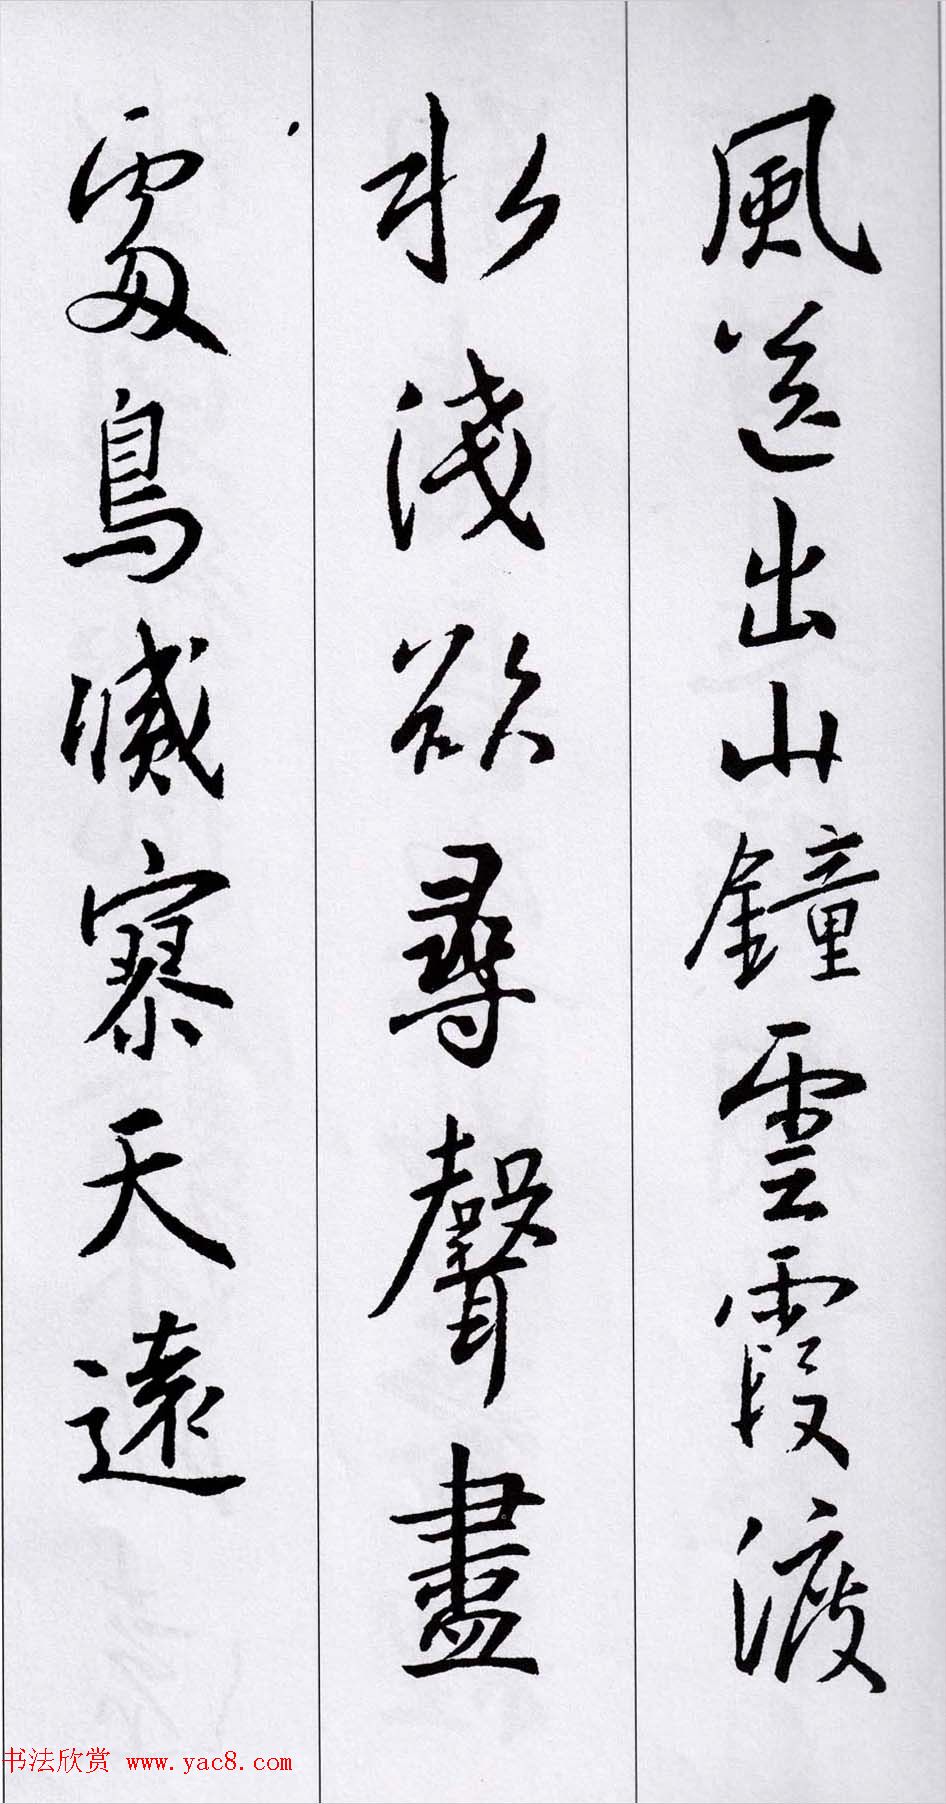 風送出山鐘雲霞渡
水淺欲尋聲盡
處鳥滅寥天遠
书法欣赏 www.yac8.com